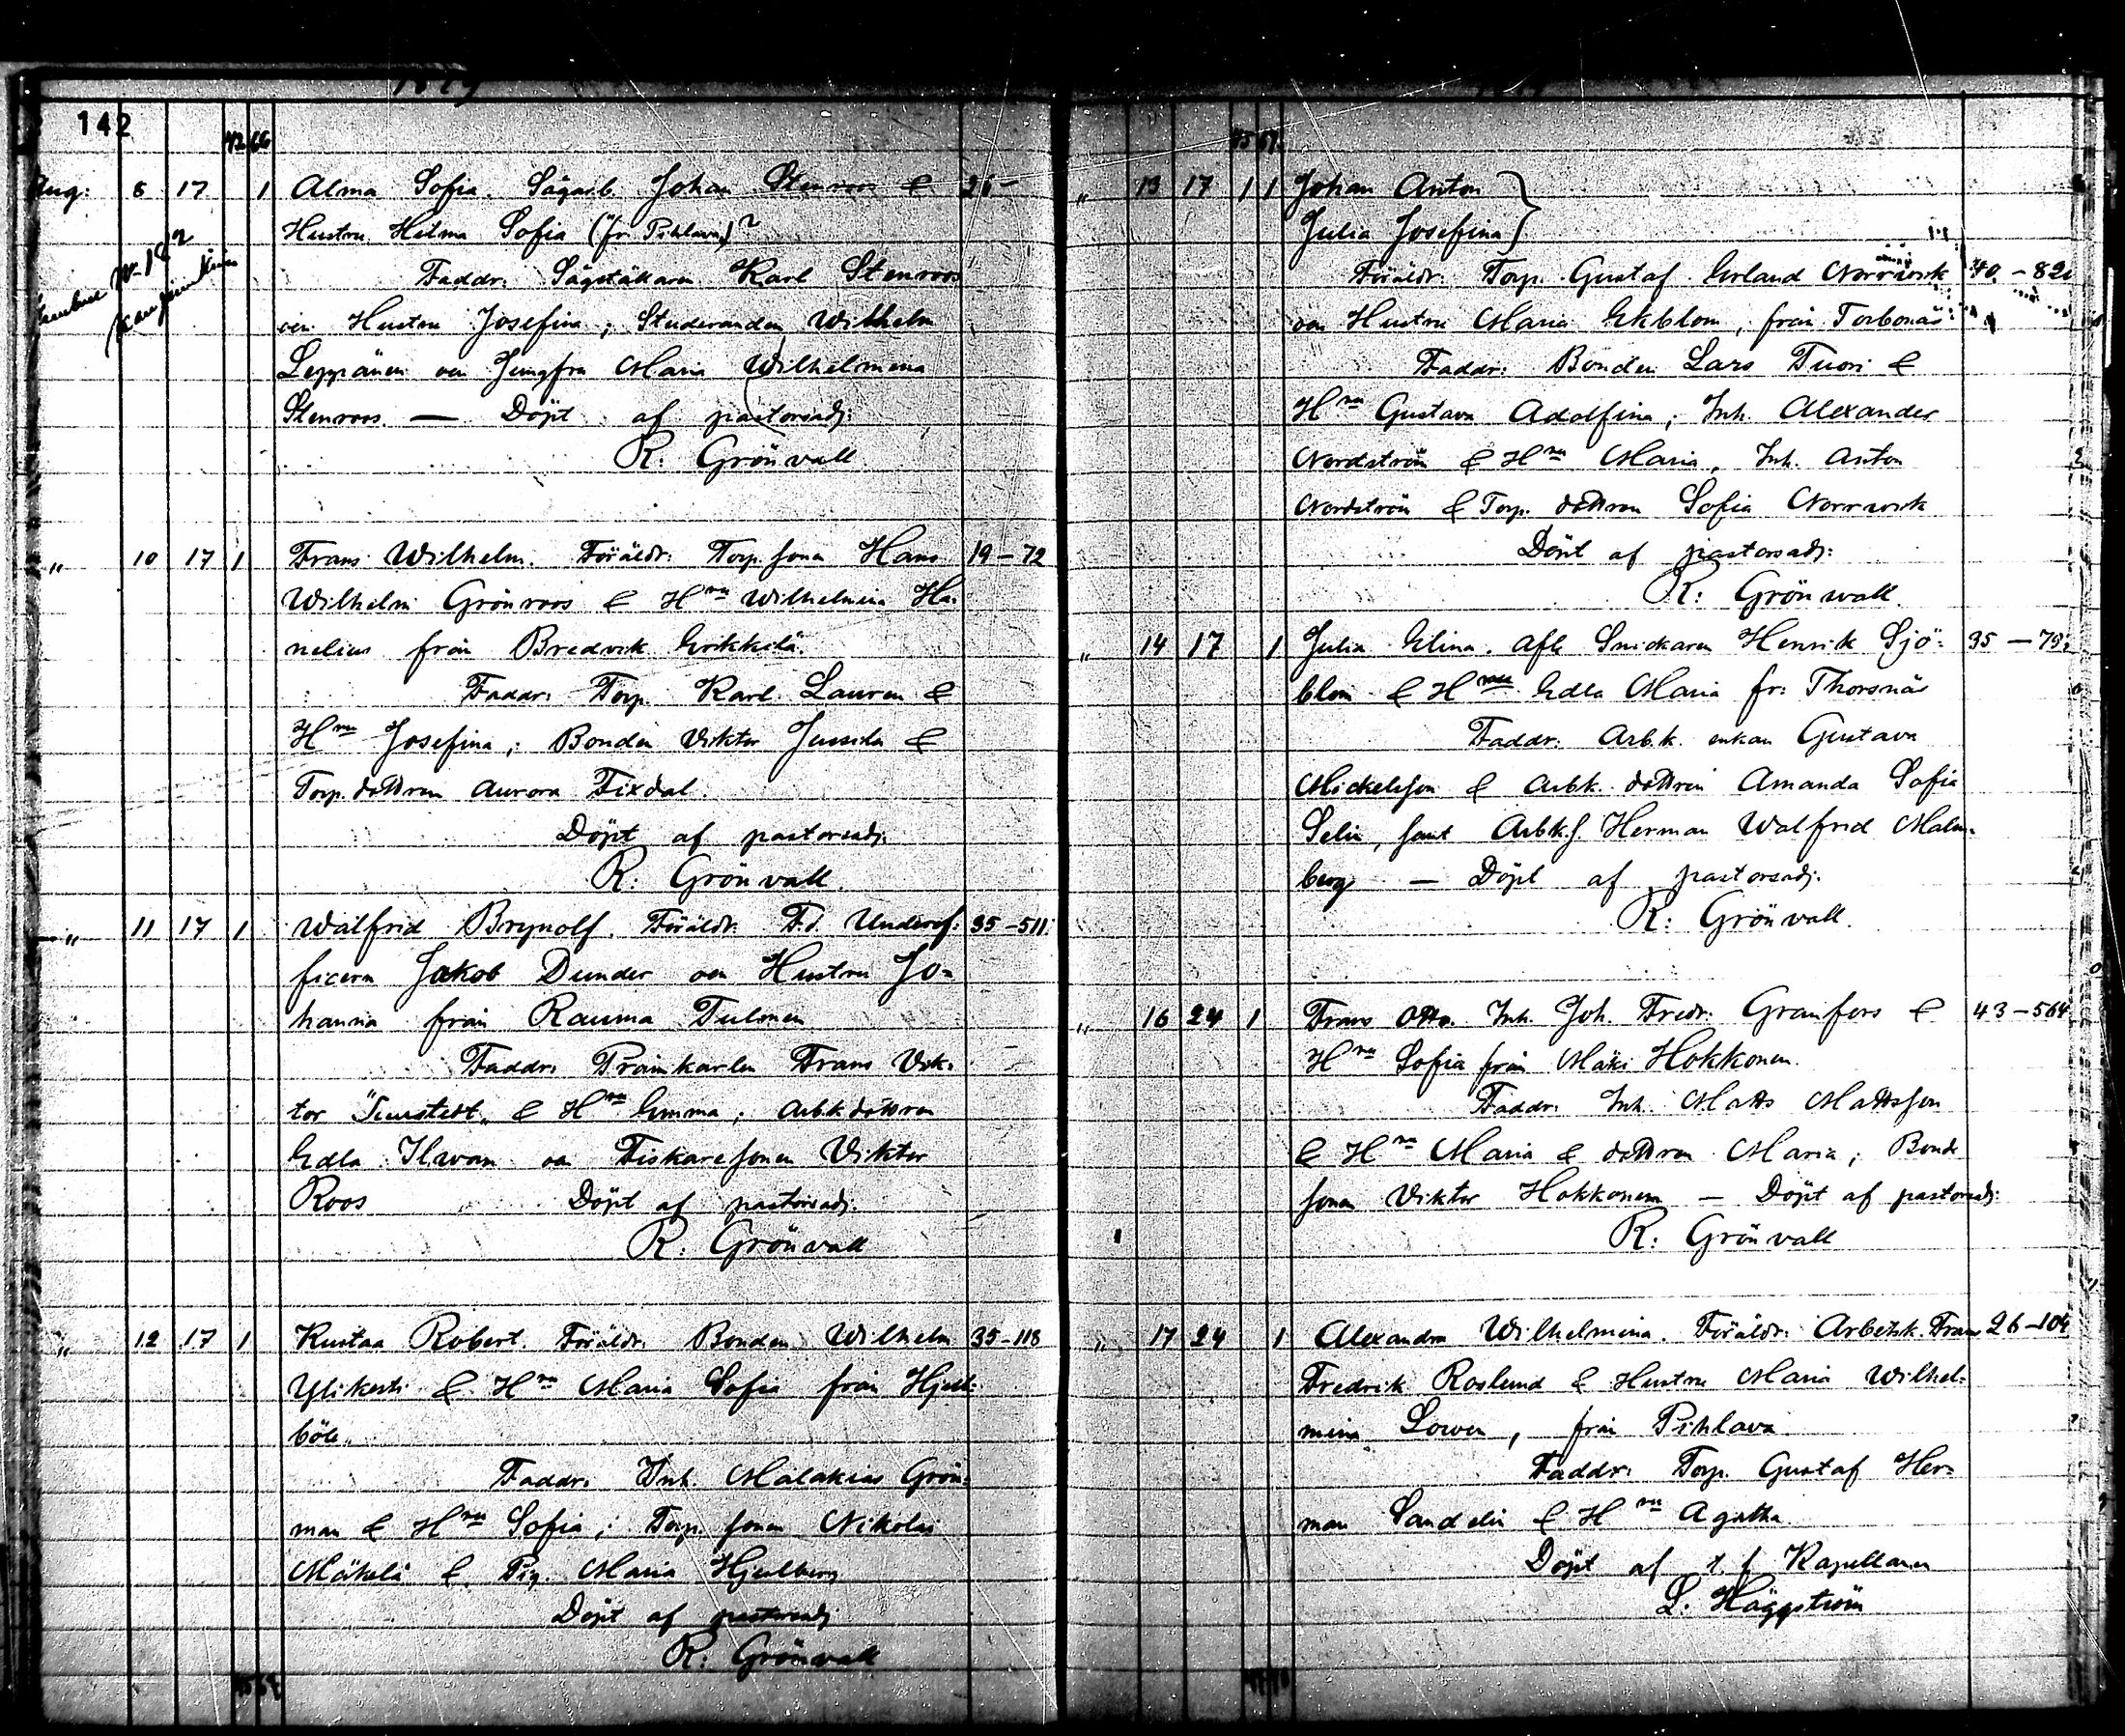 1879
142
42 66
Aug: 8 17 1 Alma Sofia. Sågarb. Johan Stenroos & 26 –
Hustru Hilma Sofia (fr. Pihlava)?
Faddr. Sågställaren Karl Stenroos
och Hustru Josefina; Studeranden Wilhelm
Leppänen och Jungfru Maria Wilhelmina
Stenroos. — Döpt af pastorsadj.
R. Grönvall
" 10 17 1 Frans Wilhelm. Föräldr: Torp. sonen Hans 19 – 72
Wilhelm Grönroos & Hru Wilhelmina Ha-
nelius från Bredvik Erikkilä.
Faddr. Torp. Karl Lauren &
Hru Josefina; Bonden Viktor Jussila &
Torp. dottren Aurora Fixdal.
Döpt af pastorsadj.
R: Grönvall.
" 11 17 1 Walfrid Brynolf. Föräldr. F.d. Underof- 35 – 511
ficern Jakob Dunder och Hustru Jo-
hanna från Rauma Tulonen
Faddr. Pråmkarlen Frans Vik-
tor & Hru Emma; Arb.k. dottren
Edla Ilwan och Fiskaresonen Viktor
Roos Döpt af pastorsadj.
R: Grönvall
" 12 17 1 Kustaa Robert. Föräldr. Bonden Wilhelm 35 – 118
Ylikesti & Hru Maria Sofia från Hjelt-
böle.
Faddr. Inh. Malakias Grön-
man & Hru Sofia; Torp. sonen Nikolai
Mäkelä & Pig. Maria Hjulberg
Döpt af pastorsadj
R: Grönvall
45 67
" 13 17 1 1 Johan Anton
Julia Josefina
Föräldr. Torp. Gustaf Erland Norrwik 40 – 82
och Hustru Maria Ekblom, från Torbonäs
Faddr: Bonden Lars Tuori &
Hru Gustava Adolfina; Inh. Alexander
Nordström & Hru Maria, Inh. Anton
Nordström & Torp. dottren Sofia Norrwik
Döpt af pastorsadj:
R: Grönvall.
" 14 17 1 Julia Elina. Afl. Snickaren Henrik Sjö- 35 – 79
blom & Hru Edla Maria fr: Thorsnäs
Faddr. Arb.k. enkan Gustava
Mickelsson & Arbk. dottren Amanda Sofia
Selin, samt Arbk.s. Herman Walfrid Malm-
berg — Döpt af pastorsadj.
R: Grönvall.
" 16 24 1 Frans Otto. Inh. Joh. Fredr. Granfors & 43 – 564
Hru Sofia från Mäki Hokkonen.
Faddr. Inh. Matts Mattsson
& Hru Maria & dottren Maria; Bonde
sonen Viktor Hokkonen — Döpt af pastorsadj.
R: Grönvall
" 17 24 1 Alexandra Wilhelmina. Föräldr: Arbetsk. Frans 26 – 104
Fredrik Roslund & Hustru Maria Wilhel-
mina Lowen, från Pihlava
Faddr: Torp. Gustaf Her-
man Sandelin & Hru Agatha
Döpt af t. f. Kapellanen
L. Häggström